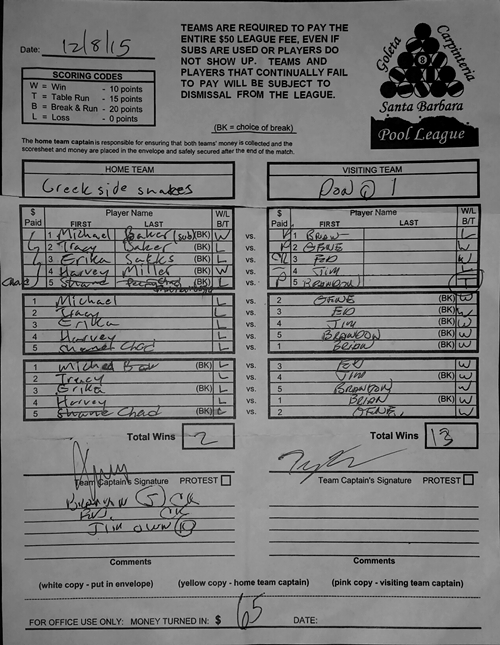 Date: 12/8/15
SCORING CODES
W = Win - 10 points
T = Table Run - 15 points
B = Break & Run - 20 points
L = Loss - 0 points
TEAMS ARE REQUIRED TO PAY THE
ENTIRE $50 LEAGUE FEE, EVEN IF
SUBS ARE USED OR PLAYERS DO
NOT SHOW UP. TEAMS AND
PLAYERS THAT CONTINUALLY FAIL
TO PAY WILL BE SUBJECT TO
DISMISSAL FROM THE LEAGUE.
(BK = choice of break)
Goleta Carpinteria
8
Santa Barbara
Pool League
The home team captain is responsible for ensuring that both teams' money is collected and the
scoresheet and money are placed in the envelope and safely secured after the end of the match.
HOME TEAM
Creek side snakes
VISITING TEAM
Don Q 1
$ Paid Player Name FIRST LAST W/L B/T
$ Paid Player Name FIRST LAST W/L B/T
1 Michael Baker (sub) (BK) W vs. 1 L
2 Tracy Baker (BK) L vs. 2 GENE W
3 Erika (BK) L vs. 3 ED W
4 Harvey Miller (BK) W vs. 4 Jim L
Chad 5 (BK) L vs. 5 BRANDON T
1 Michael L vs. 2 GENE (BK) W
2 Tracy L vs. 3 ED (BK) W
3 Erika L vs. 4 JIM (BK) W
4 Harvey L vs. 5 BRANDON (BK) W
5 Chad L vs. 1 BRIAN (BK) W
1 (BK) L vs. 3 ED W
2 Tracy L vs. 4 JIM (BK) W
3 Erika (BK) L vs. 5 BRANDON W
4 Harvey L vs. 1 BRIAN (BK) W
5 Chad (BK) L vs. 2 GENE W
Total Wins 2
Total Wins 13
Team Captain's Signature PROTEST
Team Captain's Signature PROTEST
JIM OWN 10
Comments
Comments
(white copy - put in envelope) (yellow copy - home team captain) (pink copy - visiting team captain)
FOR OFFICE USE ONLY: MONEY TURNED IN: $ 65 DATE: